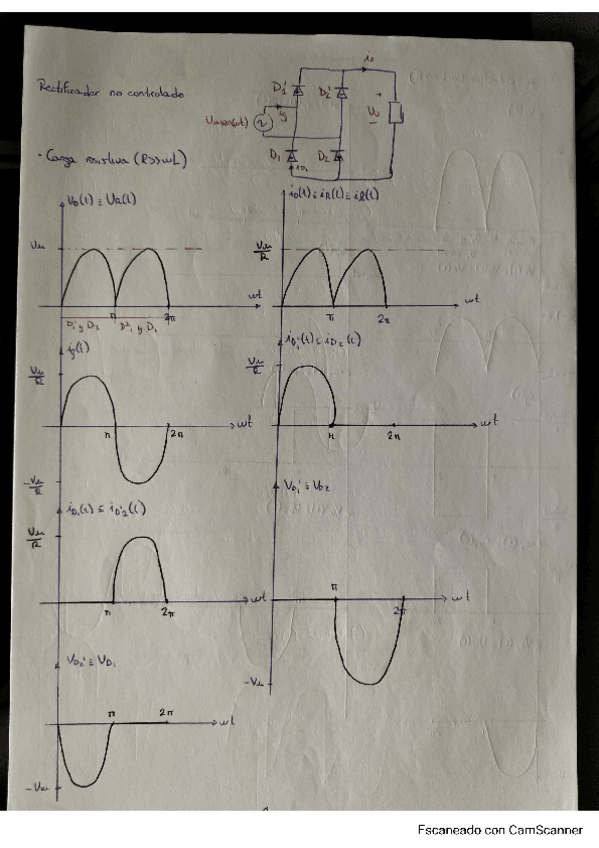 Rectificador no controlado
D1' D2' io
Vmsen(wt) ig Vo
+
-
D1 D2
iD1
· Carga resistiva (R>>wL)
Vo(t) ≡ VR(t)
Vm
wt
π 2π
D1' y D2 D2' y D1
io(t) ≡ iR(t) ≡ il(t)
Vm/R
wt
π 2π
ig(t)
Vm/R
wt
π 2π
-Vm/R
iD1'(t) ≡ iD2(t)
Vm/R
wt
π 2π
iD1(t) ≡ iD2'(t)
Vm/R
wt
π 2π
VD1' ≡ VD2
π
wt
2π
-Vm
VD2' ≡ VD1
π 2π
wt
-Vm
Escaneado con CamScanner